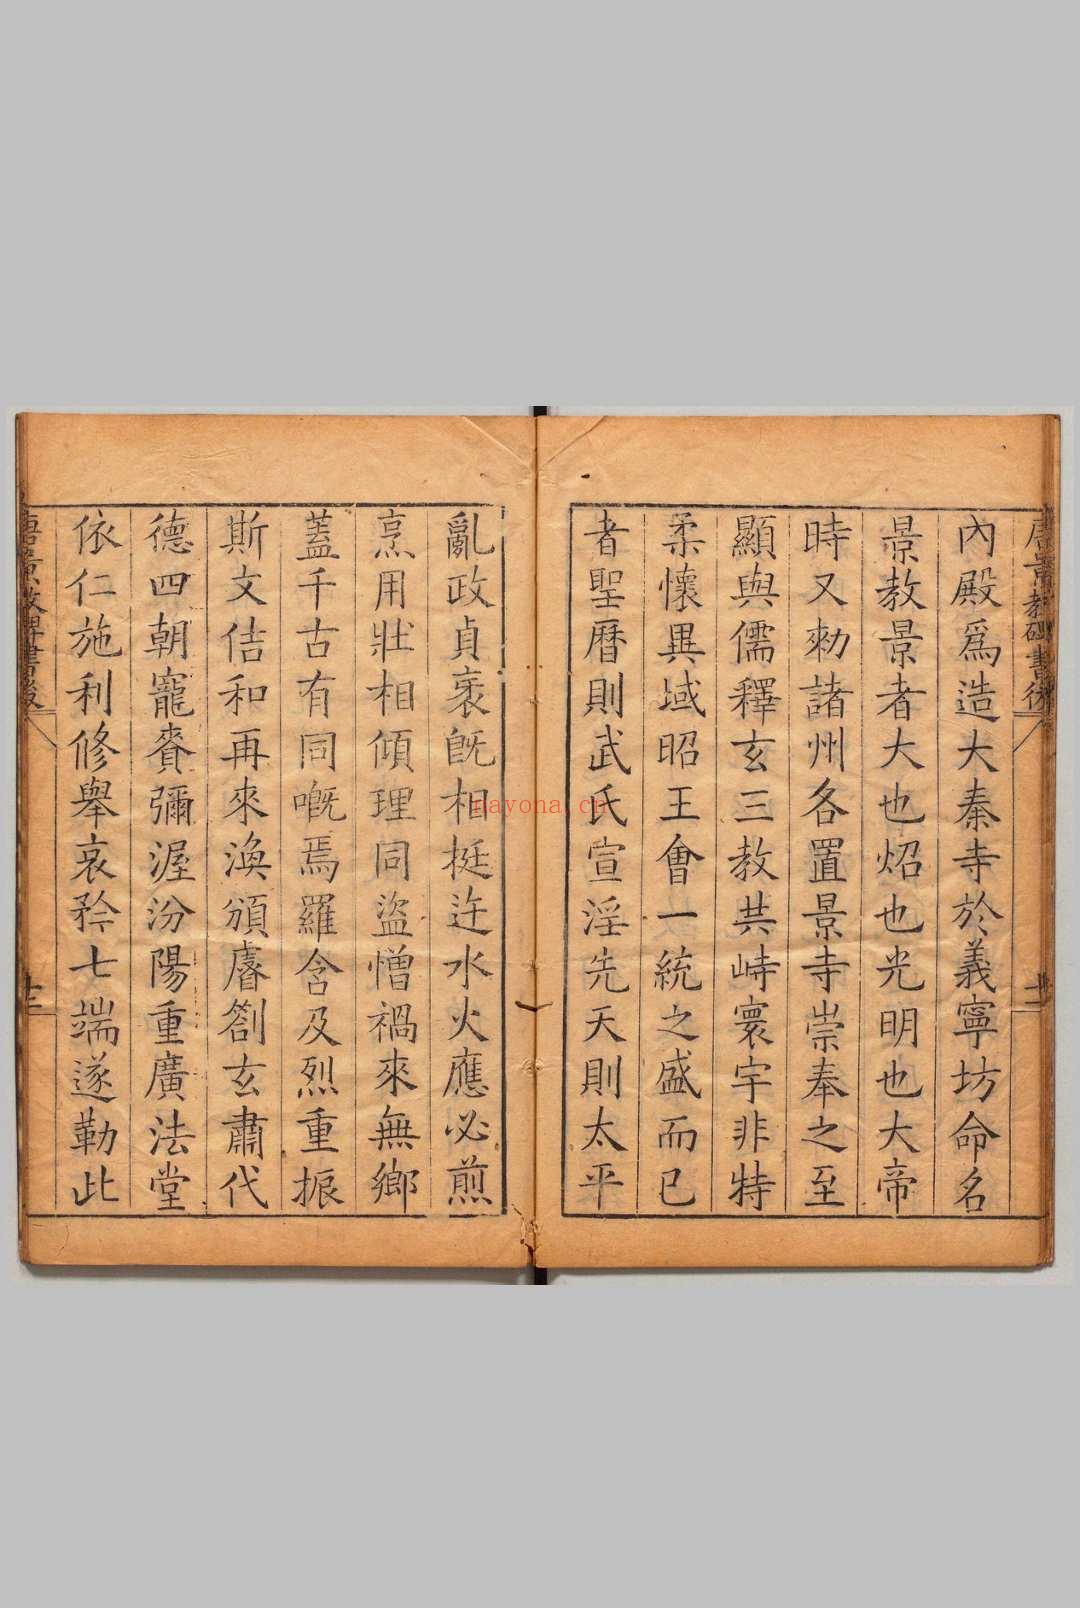 唐景教碑書後
內殿爲造大秦寺於義寧坊命名
景教景者大也炤也光明也大帝
時又勑諸州各置景寺崇奉之至
顯與儒釋玄三教共峙寰宇非特
柔懷異域昭王會一統之盛而已
者聖曆則武氏宣淫先天則太平
亂政貞衺旣相挺迕水火應必煎
烹用壯相傾理同盜憎禍來無鄉
蓋千古有同嘅焉羅含及烈重振
斯文佶和再來渙頒睿劄玄肅代
德四朝寵賚彌渥汾陽重廣法堂
依仁施利修舉哀矜七端遂勒此
唐景教碑書後
nayona.cn